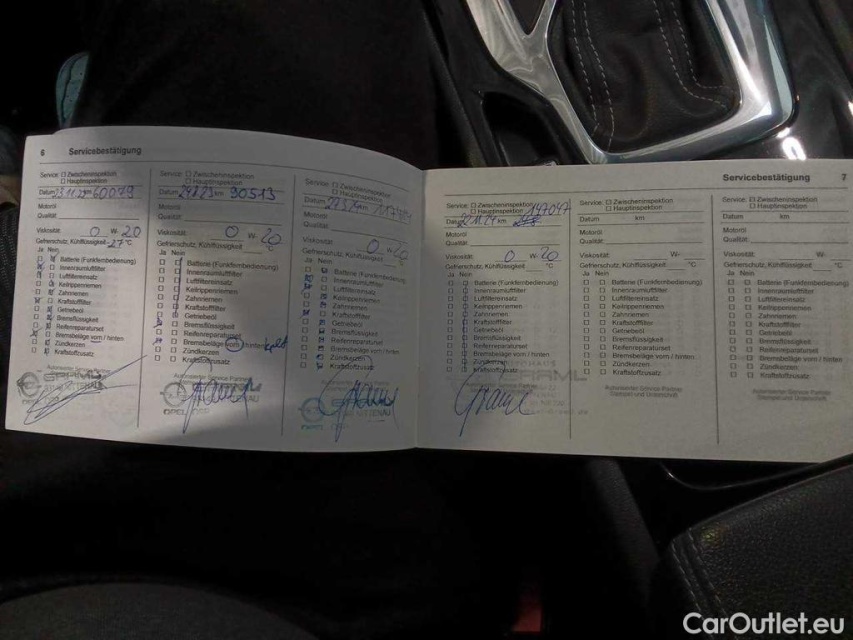 6 Servicebestätigung
Service: Zwischeninspektion
Hauptinspektion
Datum 23.11.22 km 60079
Motoröl
Qualität
Viskosität 0 W- 20
Gefrierschutz, Kühlflüssigkeit -27 °C
Ja Nein
Batterie (Funkfernbedienung)
Innenraumluftfilter
Luftfiltereinsatz
Keilrippenriemen
Zahnriemen
Kraftstofffilter
Getriebeöl
Bremsflüssigkeit
Reifenreparaturset
Bremsbeläge vorn / hinten
Zündkerzen
Kraftstoffzusatz
Autorisierter Service Partner
Service: Zwischeninspektion
Hauptinspektion
Datum km 90513
Motoröl
Qualität
Viskosität 0 W- 20
Gefrierschutz, Kühlflüssigkeit °C
Ja Nein
Batterie (Funkfernbedienung)
Innenraumluftfilter
Luftfiltereinsatz
Keilrippenriemen
Zahnriemen
Kraftstofffilter
Getriebeöl
Bremsflüssigkeit
Reifenreparaturset
Bremsbeläge vorn / hinten
Zündkerzen
Kraftstoffzusatz
Autorisierter Service Partner
OPEL
Service: Zwischeninspektion
Hauptinspektion
Datum
Motoröl
Qualität
Viskosität 0 W- 20
Gefrierschutz, Kühlflüssigkeit °C
Ja Nein
Batterie (Funkfernbedienung)
Innenraumluftfilter
Luftfiltereinsatz
Keilrippenriemen
Zahnriemen
Kraftstofffilter
Getriebeöl
Bremsflüssigkeit
Reifenreparaturset
Bremsbeläge vorn / hinten
Zündkerzen
Kraftstoffzusatz
Servicebestätigung 7
Service: Zwischeninspektion
Hauptinspektion 147047
Datum
Motoröl
Qualität
Viskosität 0 W- 20
Gefrierschutz, Kühlflüssigkeit °C
Ja Nein
Batterie (Funkfernbedienung)
Innenraumluftfilter
Luftfiltereinsatz
Keilrippenriemen
Zahnriemen
Kraftstofffilter
Getriebeöl
Bremsflüssigkeit
Reifenreparaturset
Bremsbeläge vorn / hinten
Zündkerzen
Kraftstoffzusatz
Service: Zwischeninspektion
Hauptinspektion
Datum km
Motoröl
Qualität
Viskosität W-
Gefrierschutz, Kühlflüssigkeit °C
Ja Nein
Batterie (Funkfernbedienung)
Innenraumluftfilter
Luftfiltereinsatz
Keilrippenriemen
Zahnriemen
Kraftstofffilter
Getriebeöl
Bremsflüssigkeit
Reifenreparaturset
Bremsbeläge vorn / hinten
Zündkerzen
Kraftstoffzusatz
Autorisierter Service Partner
Stempel und Unterschrift
Service: Zwischeninspektion
Hauptinspektion
Datum km
Motoröl
Qualität
Viskosität W-
Gefrierschutz, Kühlflüssigkeit °C
Ja Nein
Batterie (Funkfernbedienung)
Innenraumluftfilter
Luftfiltereinsatz
Keilrippenriemen
Zahnriemen
Kraftstofffilter
Getriebeöl
Bremsflüssigkeit
Reifenreparaturset
Bremsbeläge vorn / hinten
Zündkerzen
Kraftstoffzusatz
Autorisierter Service Partner
Stempel und Unterschrift
CarOutlet.eu